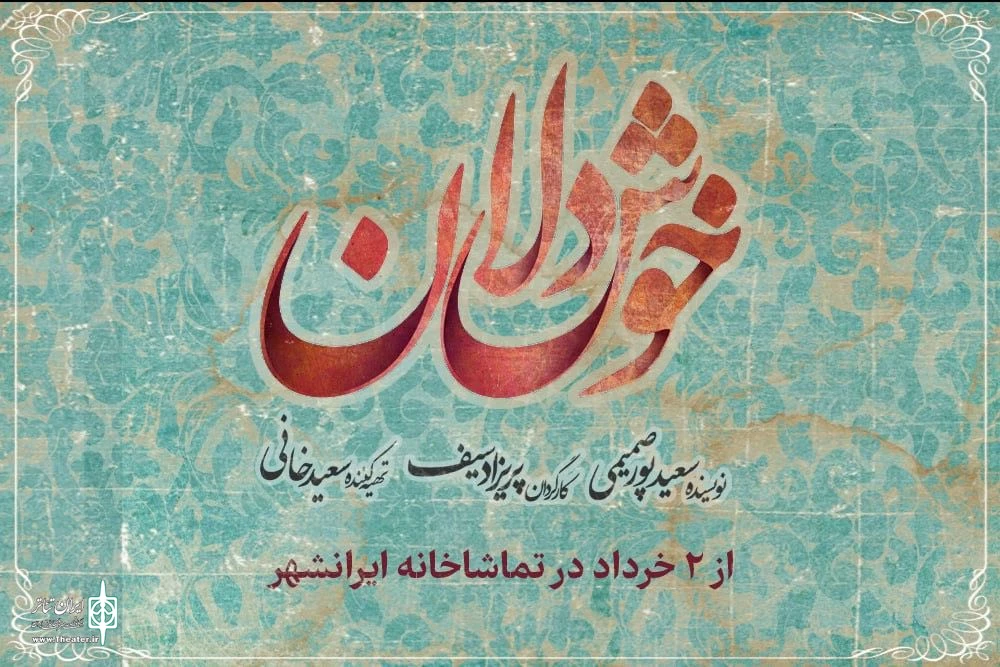 خوشدلان
نویسنده سعید پورصمیمی کارگردان پریزاد سیف تهیه کننده سعید خانی
از ۲ خرداد در تماشاخانه ایرانشهر
ایران تئاتر
www.Theater.ir